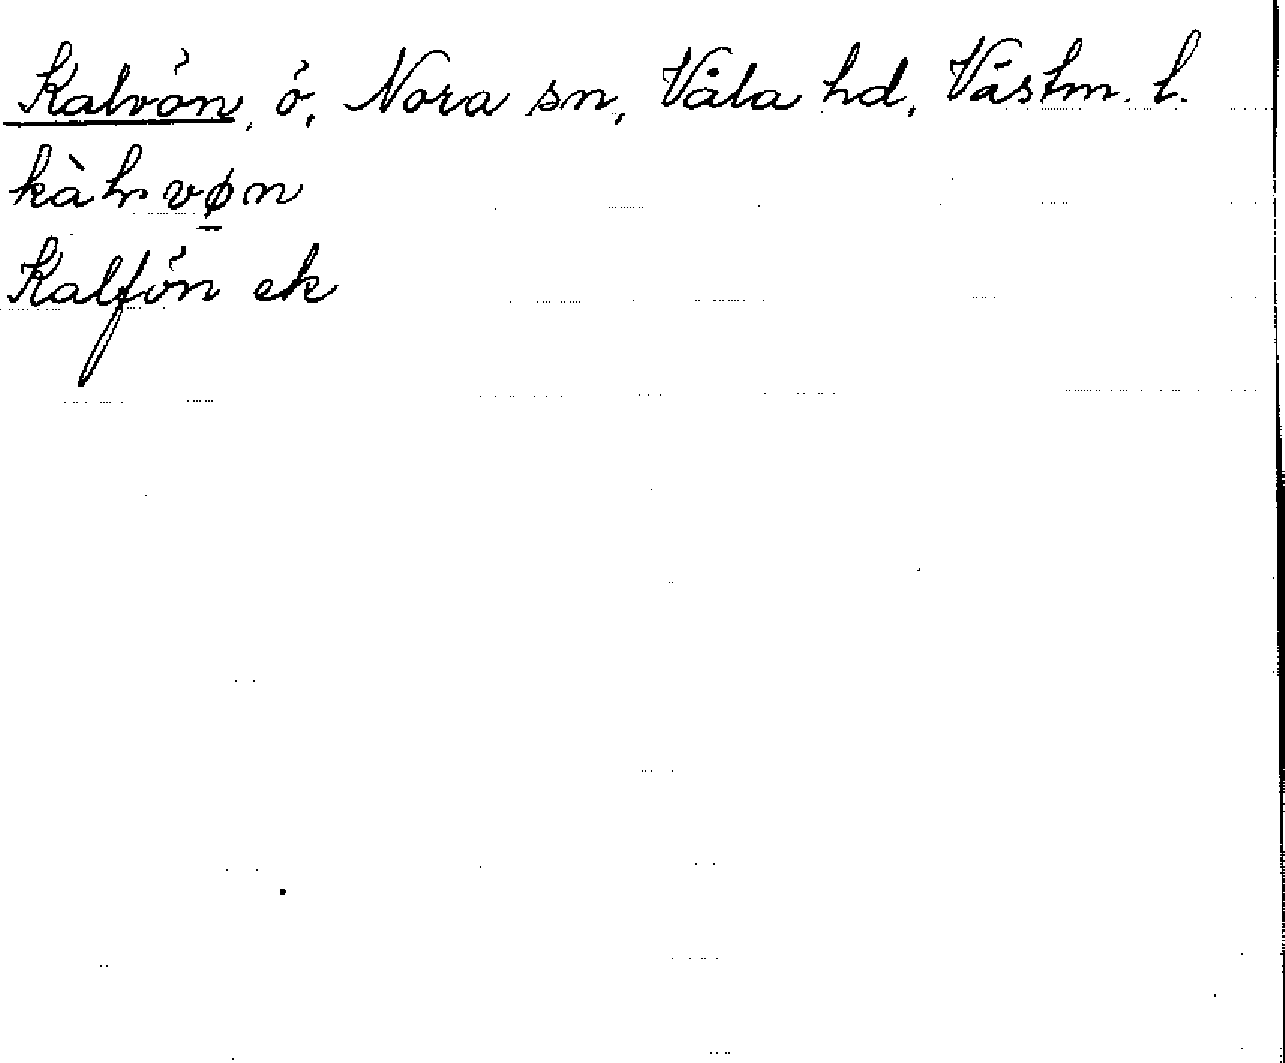 Kalvön, ö, Nora sn, Våla hd, Västm. l.
kàlvøn
Kalfön ek